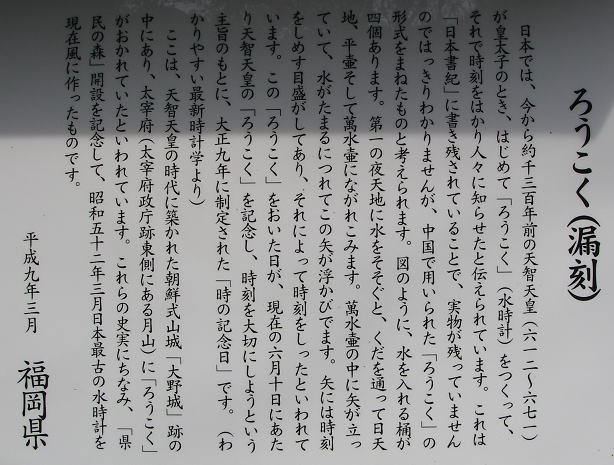 ろうこく(漏刻)
日本では、今から約千三百年前の天智天皇（六一二〜六七一）
が皇太子のとき、はじめて「ろうこく」（水時計）をつくって、
それで時刻をはかり人々に知らせたと伝えられています。これは
「日本書紀」に書き残されていることで、実物が残っていません
のではっきりわかりませんが、中国で用いられた「ろうこく」の
形式をまねたものと考えられます。図のように、水を入れる桶が
四個あります。第一の夜天地に水をそそぐと、くだを通って日天
地、平壷そして萬水壷にながれこみます。萬水壷の中に矢が立っ
ていて、水がたまるにつれてこの矢が浮かびでます。矢には時刻
をしめす目盛がしてあり、それによって時刻をしったといわれて
います。この「ろうこく」をおいた日が、現在の六月十日にあた
り天智天皇の「ろうこく」を記念し、時刻を大切にしようという
主旨のもとに、大正九年に制定された「時の記念日」です。（わ
かりやすい最新時計学より）
ここは、天智天皇の時代に築かれた朝鮮式山城「大野城」跡の
中にあり、太宰府（太宰府政庁跡東側にある月山）に「ろうこく」
がおかれていたといわれています。これらの史実にちなみ、「県
民の森」開設を記念して、昭和五十二年三月日本最古の水時計を
現在風に作ったものです。
平成九年三月
福岡県